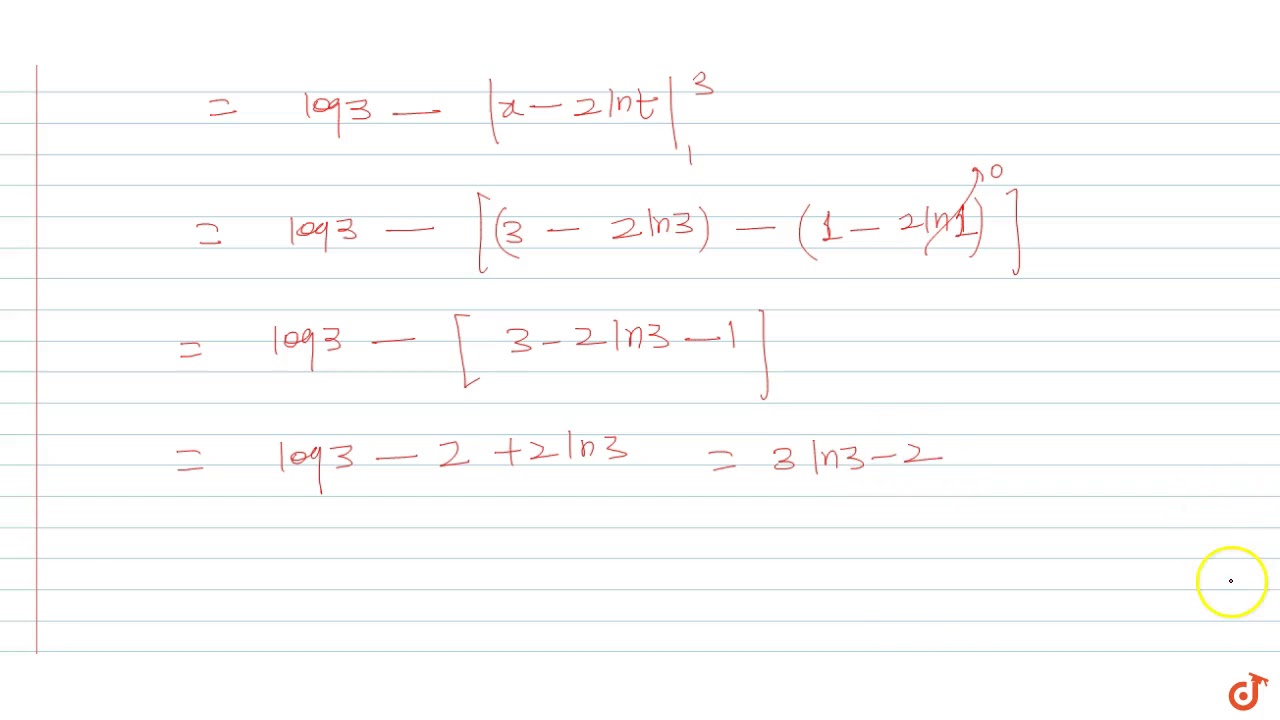 = log3 - |x - 2lnt|₁³
= log3 - [(3 - 2ln3) - (1 - 2ln1)⁰]
= log3 - [3 - 2ln3 - 1]
= log3 - 2 + 2ln3 = 3ln3 - 2